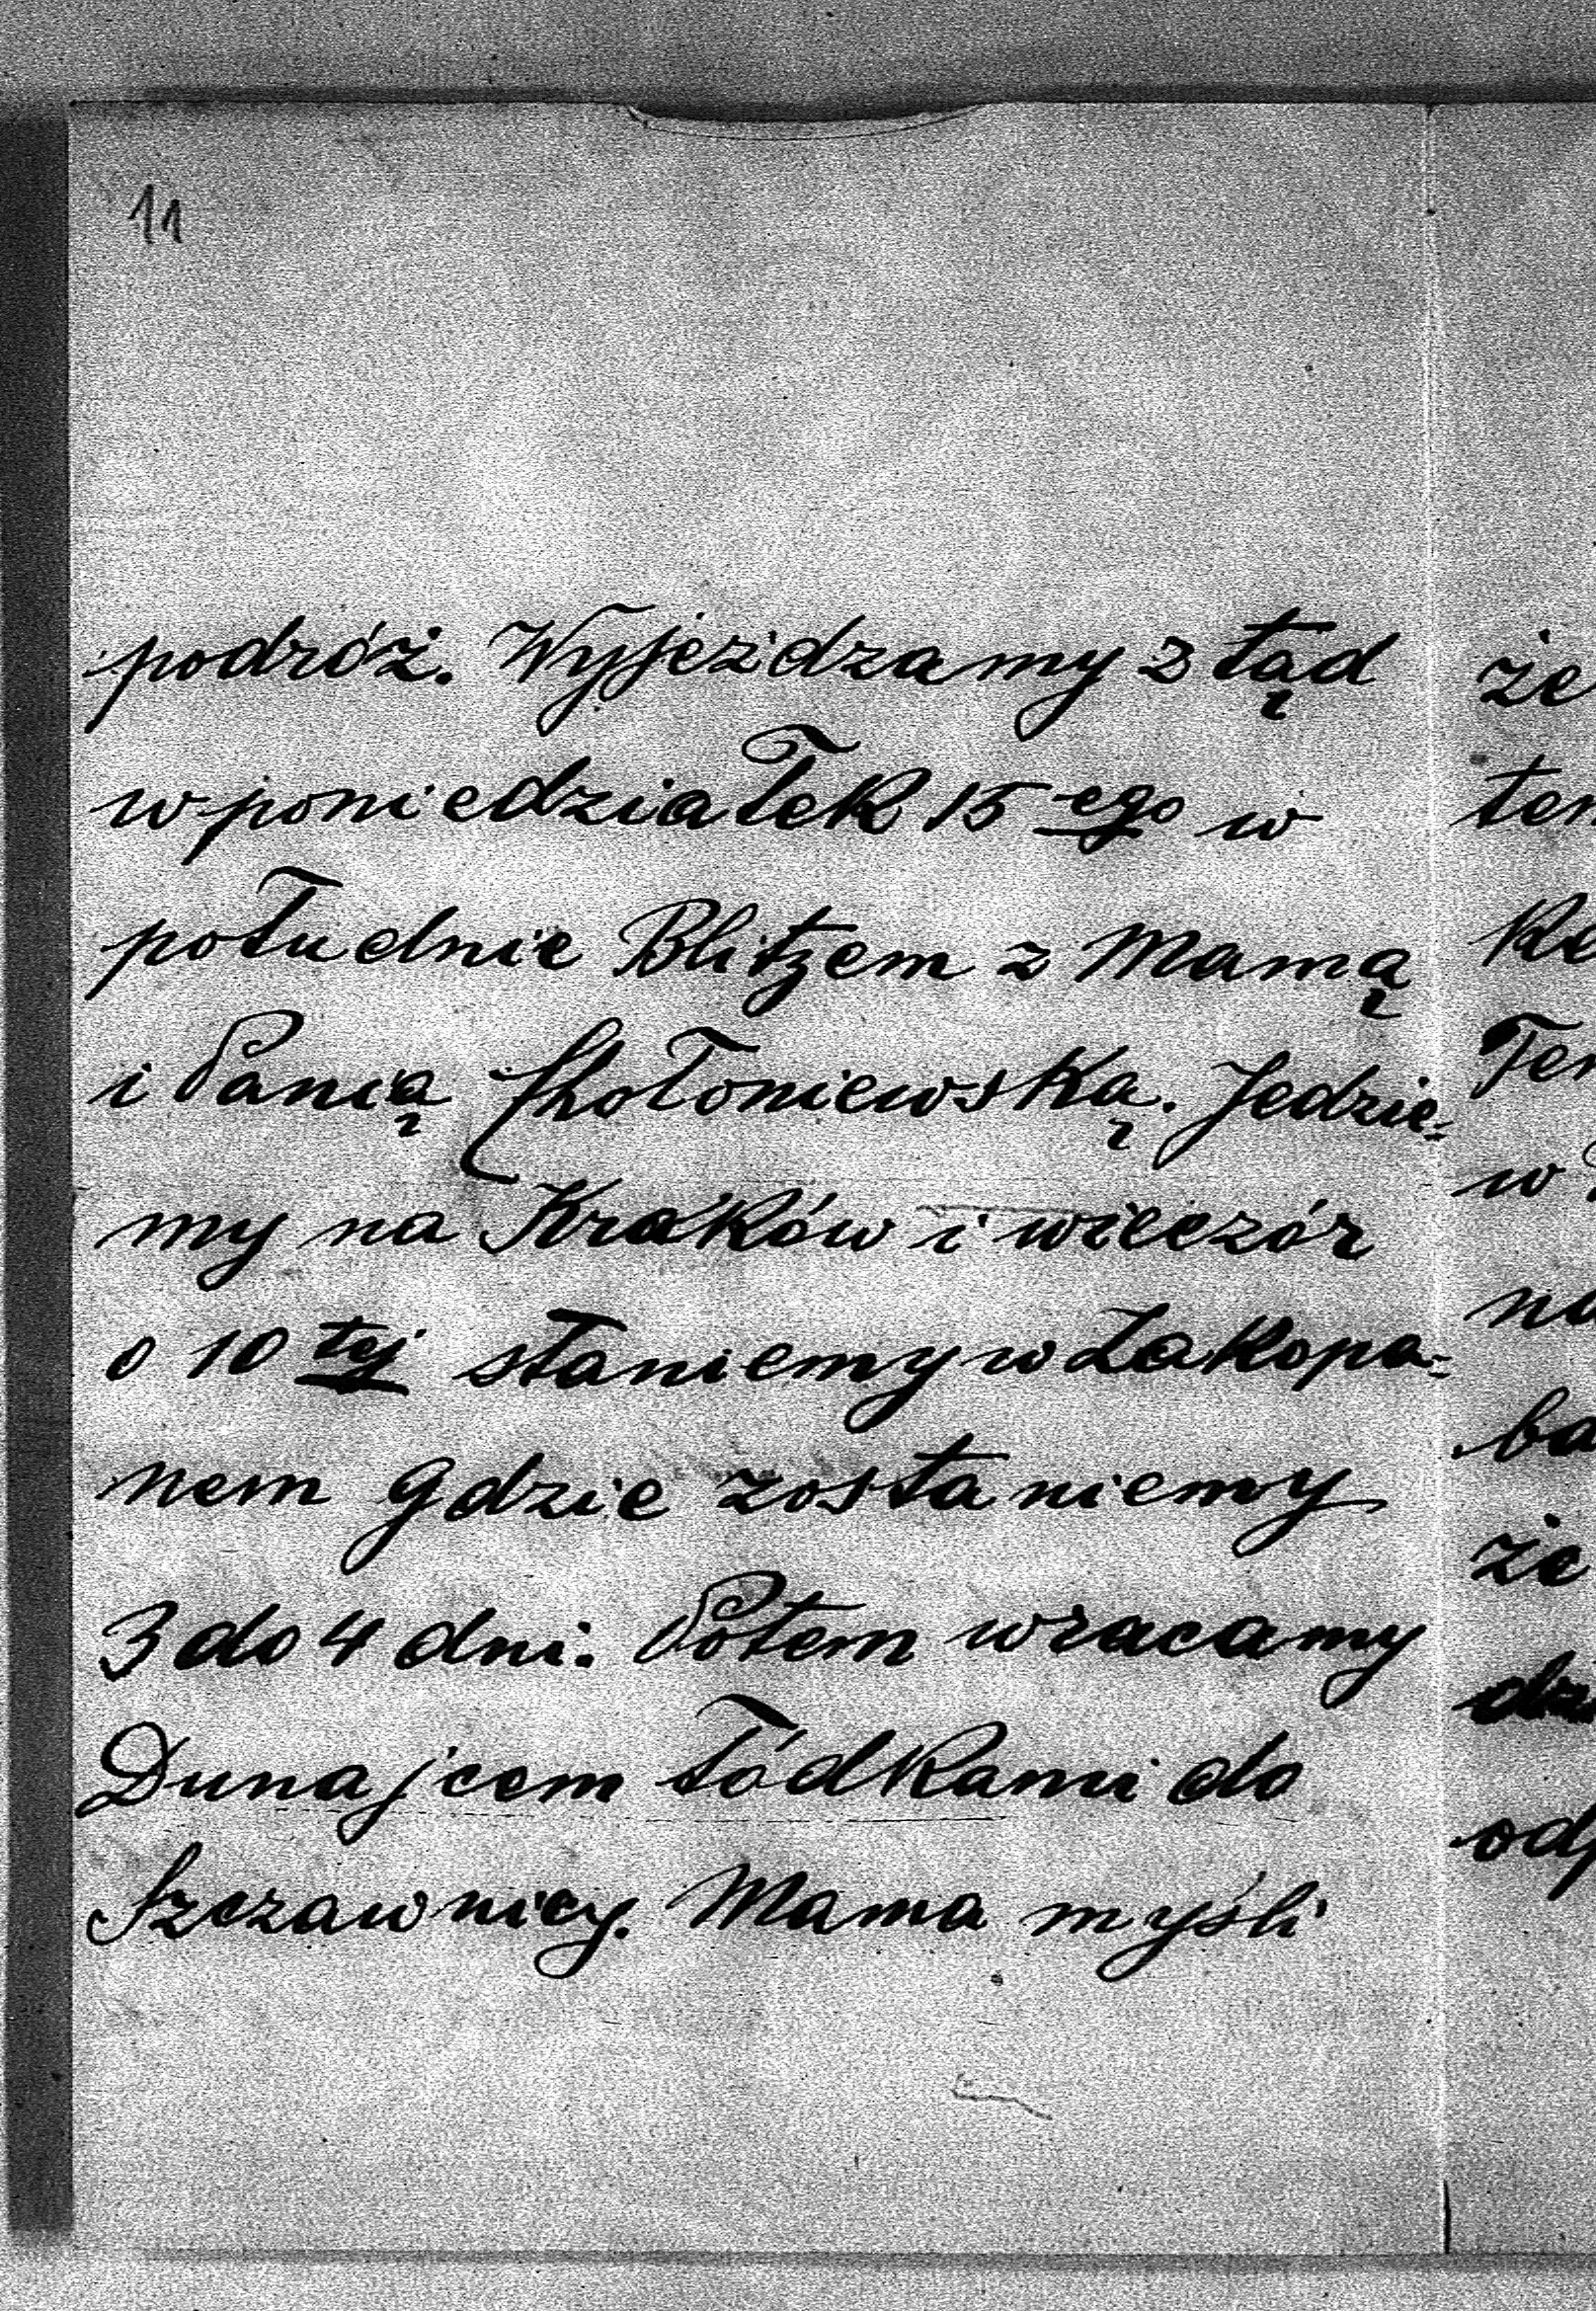 11
podróż. Wyjeżdzamy z tąd
w poniedziałek 15 ego w
południe Blitzem z Mamą
i Panią Chołoniewską. Jedzie=
my na Kraków i wieczór
o 10 tej staniemy w Zakopa=
nem gdzie zostaniemy
3 do 4 dni. Potem wracamy
Dunajcem łódkami do
Szczawnicy. Mama myśli
że
w
że